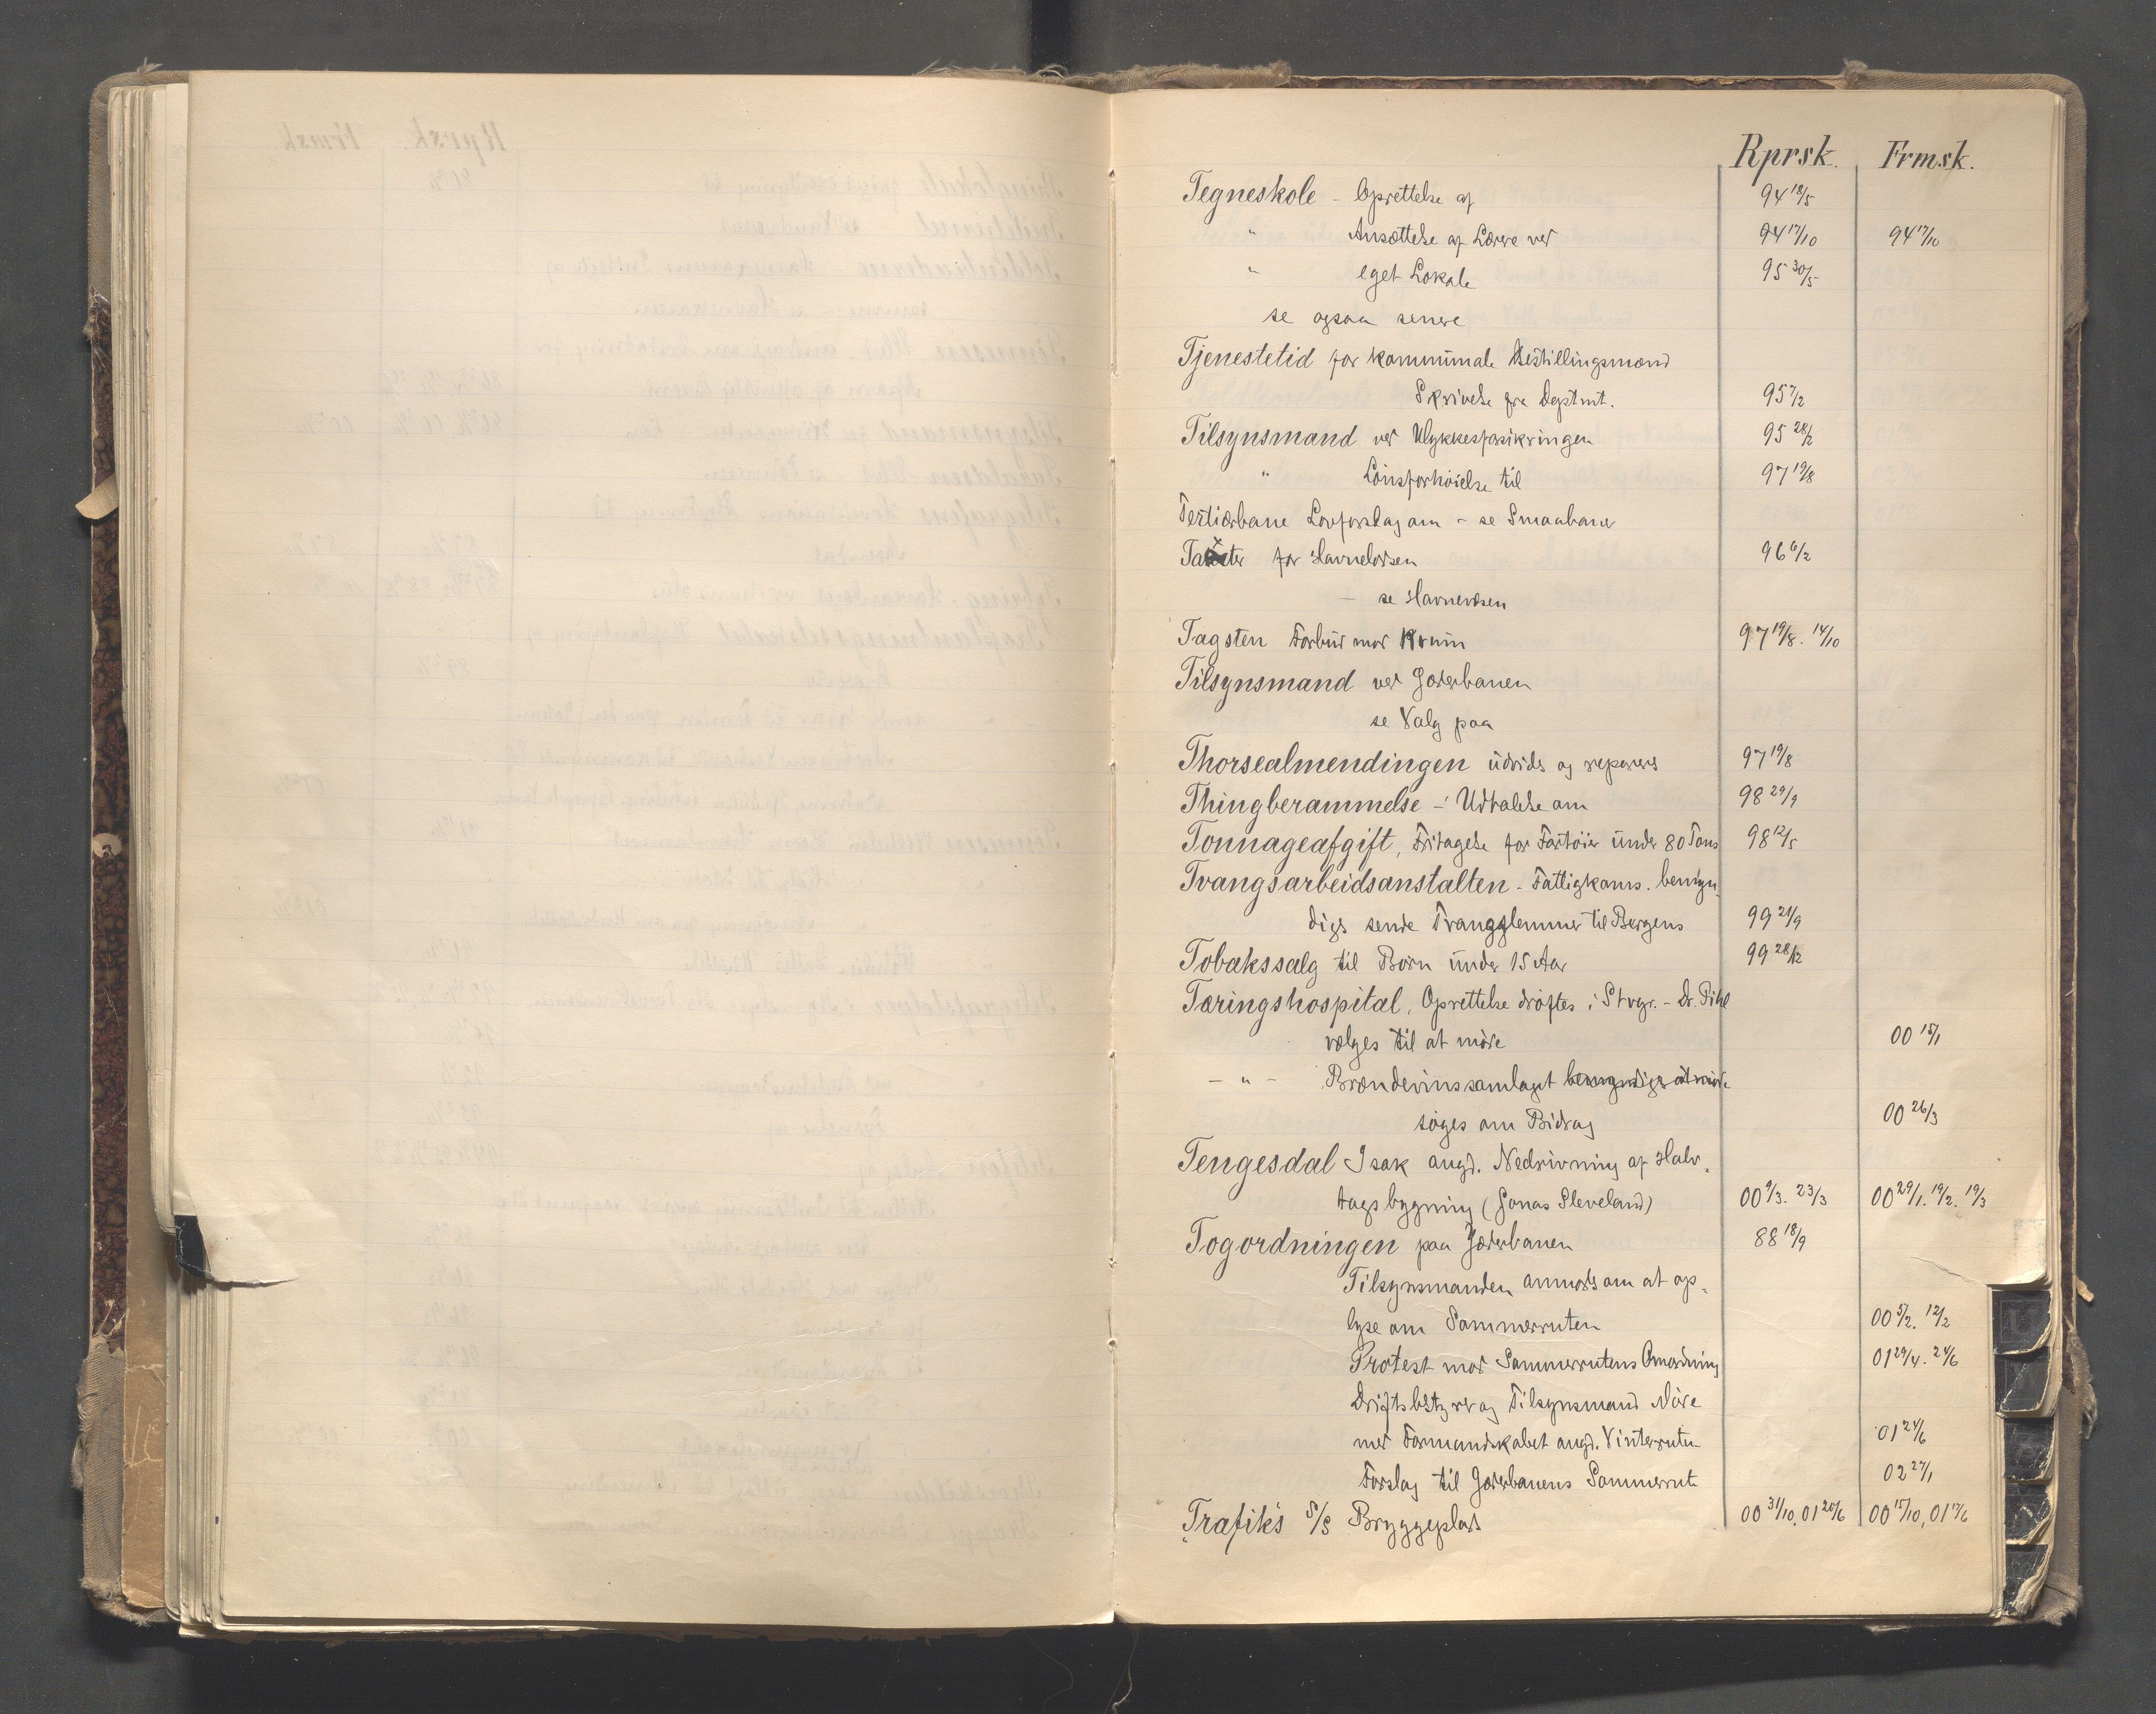 Rprsk. Frmsk.
Tegneskole - Oprettelse af 94 18/5
" Ansættelse af Lærere ved 94 17/10 94 17/10
" eget Lokale 95 30/5
se ogsaa senere
Tjenestetid for kommunale Bestillingsmænd
Skrivelse fra Deptmt. 95 7/2
Tilsynsmand ved Ulykkesforsikringen 95 28/2
" Lönsforhöielse til 97 19/8
Tertiærbane Lovforslag om - se Smaabaner
Taxter for Havnelodsen 96 6/2
- se Havnevæsen
Tagsten Forbud mod 97 19/8. 14/10
Tilsynsmand ved Jæderbanen
se Valg paa
Thorsealmendingen udvides og repareres 97 19/8
Thingberammelse - Udtalelse om 98 29/9
Tonnageafgift, Fritagelse for Fartöier under 80 Tons 98 12/5
Tvangsarbeidsanstalten - Fattigkoms. bemyn-
diges sende Tvangslemmer til Bergens 99 21/9
Tobakssalg til Börn under 15 Aar 99 28/12
Tæringshospital, Oprettelse dröftes i Stvgr. - Dr. Pihl
vælges til at möde 00 15/1
- " - Brændevinssamlaget bemyndiges at möde
söges om Bidrag 00 26/3
Tengesdal Isak angd. Nedrivning af Halv-
tagsbygning (Jonas Sleveland) 00 9/3. 23/3 00 29/1. 19/2. 19/3
Togordningen paa Jæderbanen 88 18/9
Tilsynsmanden anmodes om at op-
lyse om Sommerruten 00 5/2. 12/2
Protest mod Sommerrutens Omordning 01 29/4. 24/6
Driftsbestyrer og Tilsynsmand Möde
med Formandskabet angd. Vinterruten 01 24/6
Forslag til Jæderbanens Sommerrute 02 27/1
"Trafik's" S/S Bryggeplads 00 31/10, 01 20/6 00 15/10, 01 17/6